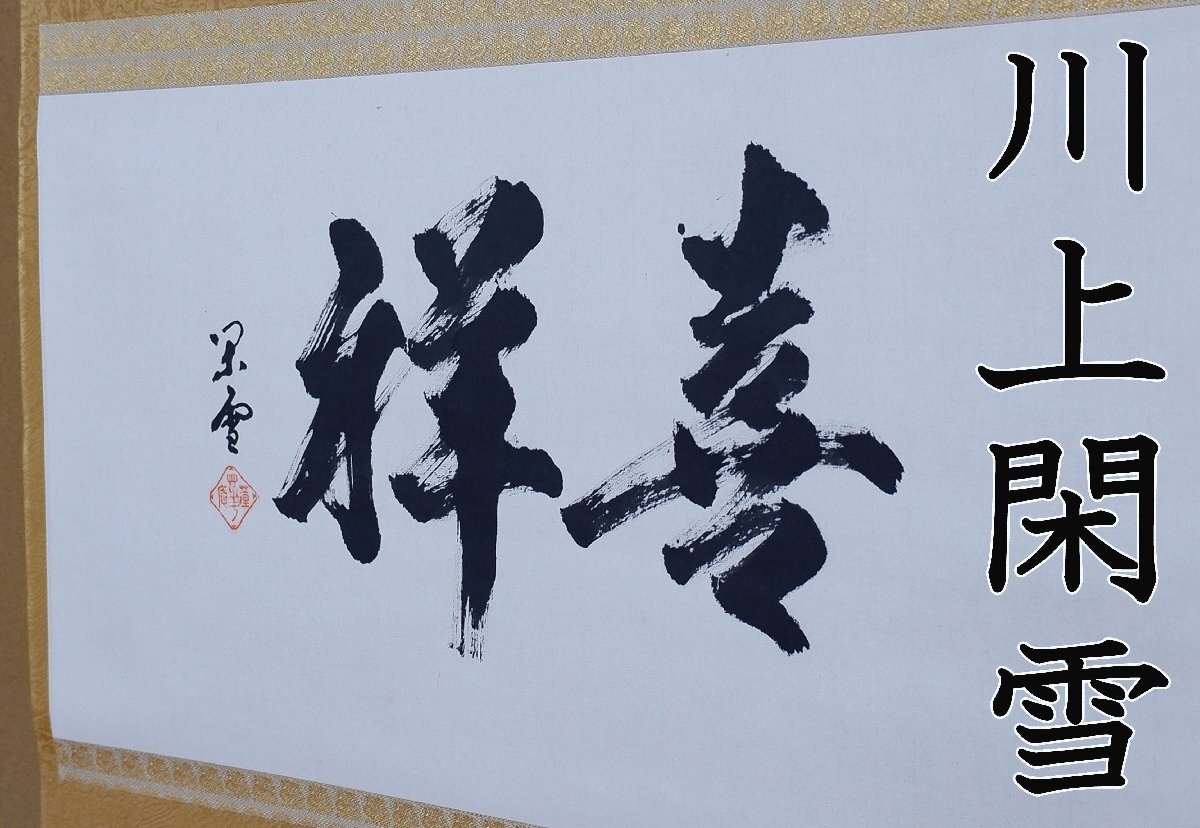 川上閑雪
喜祥
閑雪